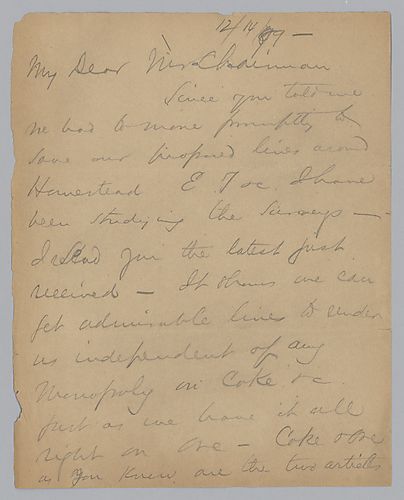 12/14/97 —
My Dear Mr Chairman
Since you told me
we had to move promptly to
save our proposed lines around
Homestead E T &c. I have
been studying the Surveys —
I send you the latest just
received — It shows we can
get admirable lines to render
us independent of any
Monopoly in Coke &c.
just as we have it all
right on Ore — Coke & Ore
as you know are the two articles